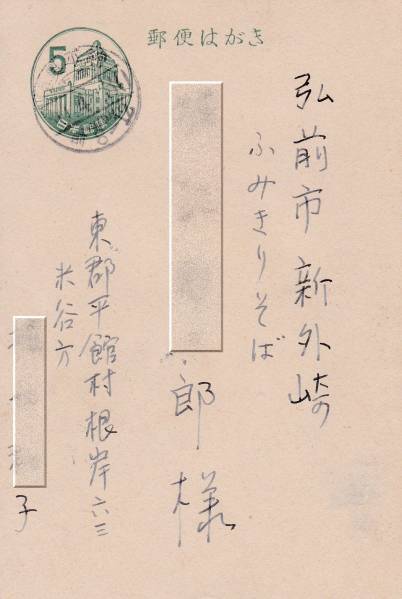 郵便はがき
5
弘前市新外崎の
ふみきりそば
郎様
東郡平館村根岸六三
米谷方
子